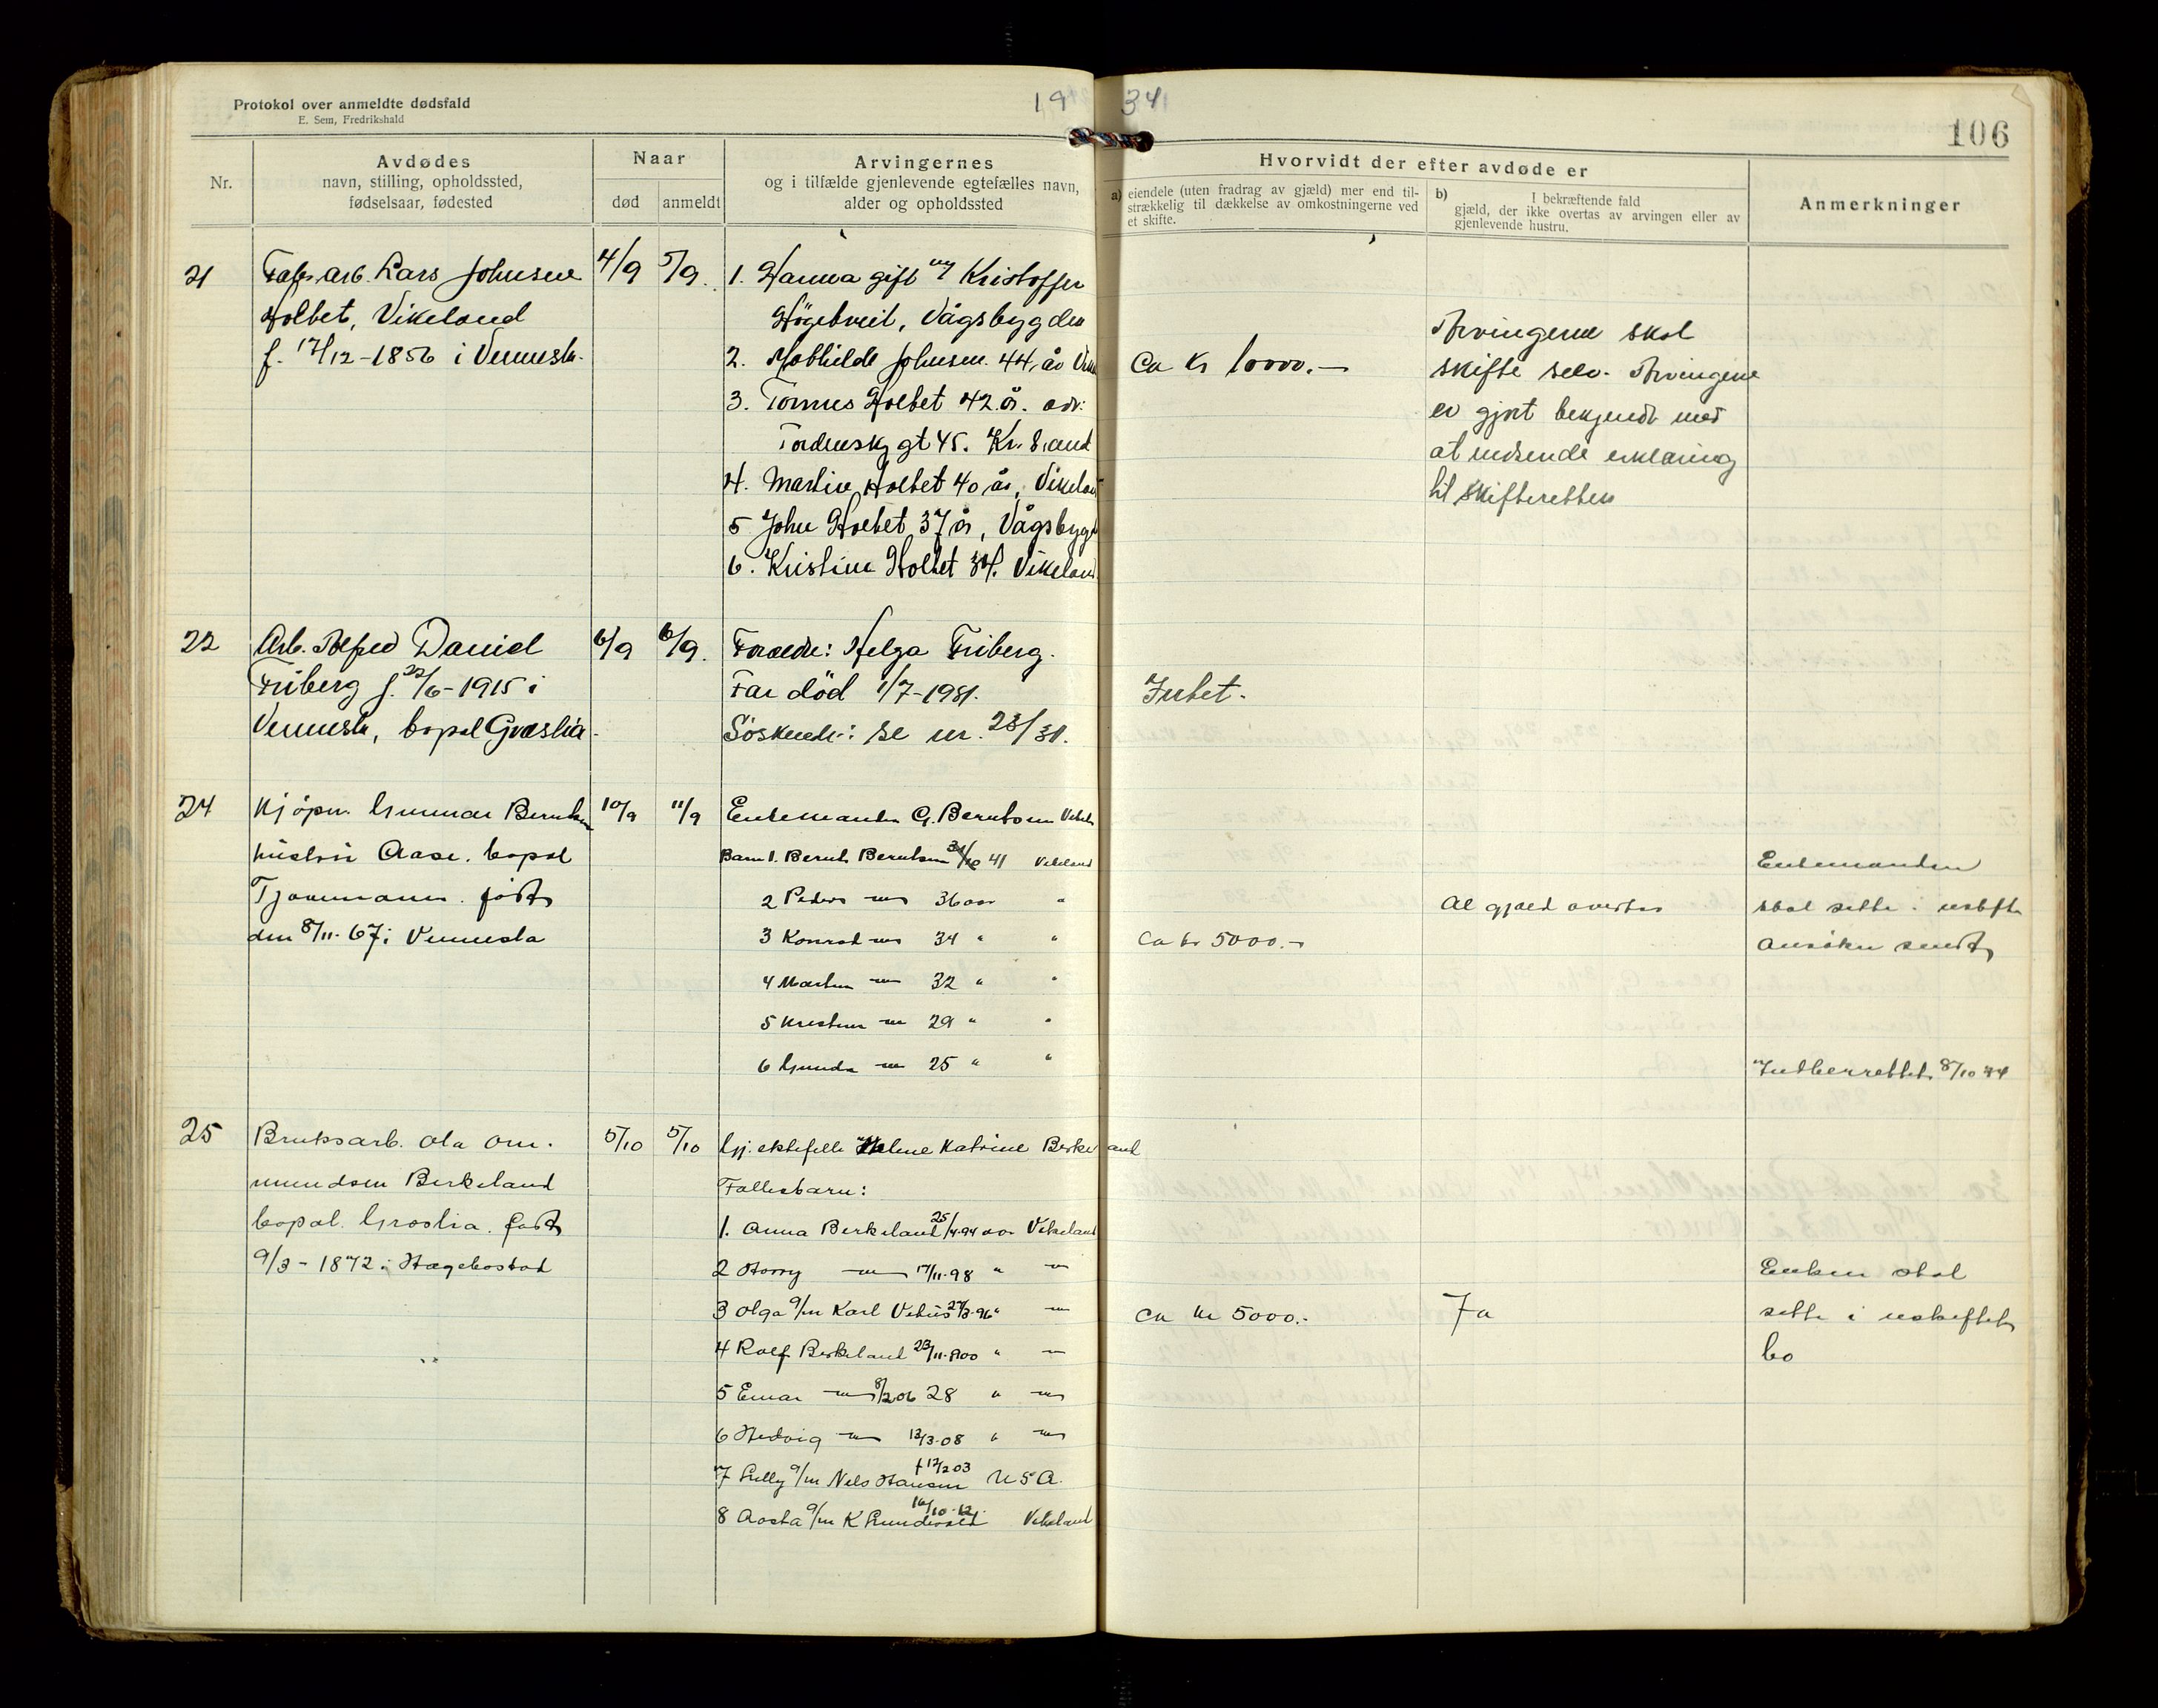 Protokol over anmeldte dødsfald
E. Sem, Fredrikshald
1934
106
Nr.
Avdødes
navn, stilling, opholdssted,
fødselsaar, fødested
Naar
død
anmeldt
Arvingernes
og i tilfælde gjenlevende egtefælles navn,
alder og opholdssted
Hvorvidt der efter avdøde er
a) eiendele (uten fradrag av gjæld) mer end til-
strækkelig til dækkelse av omkostningerne ved
et skifte.
b) I bekræftende fald
gjæld, der ikke overtas av arvingen eller av
gjenlevende hustru.
Anmerkninger
21
Fabr. arb. Lars Johnsen
Holbet, Vikeland
f. 17/12-1856 i Vennesla.
4/9
5/9.
1. Hanna gift m/ Kristoffer
Vågsbygden
2. Mathilde Johnsen. 44 år
3. Holbet 42 år. adr:
Tordenskj gt 45. Kr. sand
4. Martin Holbet 40 år, Vikeland
5 John Holbet 37 år, Vågsbygd
6. Kristine Holbet 34. Vikeland
Ca Kr 10000.—
Arvingerne skal
skifte selv. Arvingene
er gjort bekjendt med
at indsende erklæring
til skifteretten
22
Arb. Alfred Daniel
Friberg f. 22/6-1915 i
Vennesla, bopæl Graslia.
6/9
6/9.
Forældre: Helga Friberg.
Far död 1/7-1931.
Söskende: se nr. 23/31.
Intet.
24
Kjöpm. Gunnar Berntsen
hustru Aase. bopæl
Tjommann. födt
den 8/11-67 i Vennesla
10/9
11/9
Enkemanden G. Berntsen
Barn 1. Bernt Berntsen 41 Vikeland
2 Peder — 36 aar "
3 Konrad — 34 " "
4 Martin — 32 " "
5 — 29 " "
6 Gunda — 25 " "
ca kr 5000.-
Al gjæld overtas
Enkemanden
skal sitte i uskifte
Ansökn sendt
Indberettet 8/10 34
25
Bruksarb. Ola Om-
mundsen Birkeland
bopæl. Groslia. födt
9/3-1872 i Hægebostad
5/10
5/10
Gj. ektefelle Helene Katrine Birkeland
Fellesbarn:
1. Anna Birkeland 25/4-94 aar Vikeland
2 Harry — 17/11-98 " —
3 Olga g/m Karl 27/3-96 " —
4 Rolf Birkeland 23/11-1900 " —
5 Einar — 8/2 06 28 " —
6 Hedvig — 12/3-08 " —
7 Lilly g/m Nils Hansen f 12/2 03 USA.
8 Aasta g/m K 16/10-12. Vikeland
ca kr 5000.-
Ja
Enken skal
sitte i uskiftet
bo